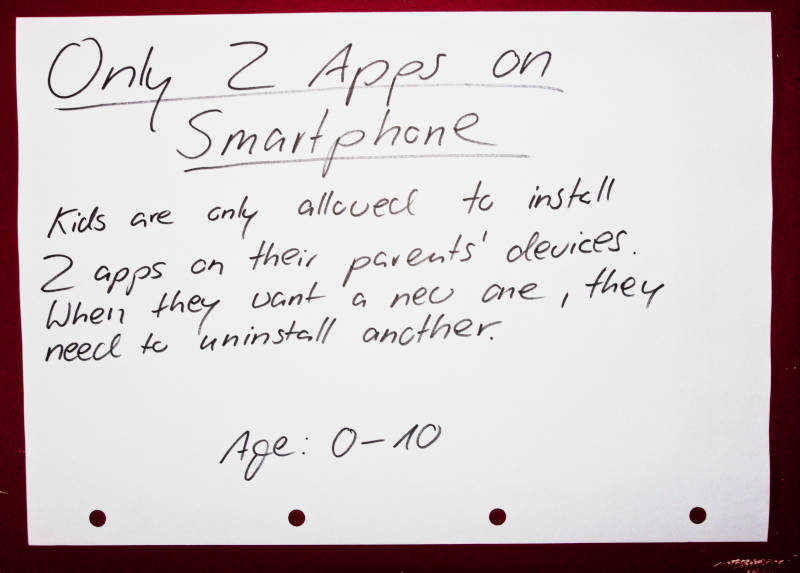 Only 2 Apps on
Smartphone
Kids are only allowed to install
2 apps on their parents' devices.
When they want a new one, they
need to uninstall another.
Age: 0-10